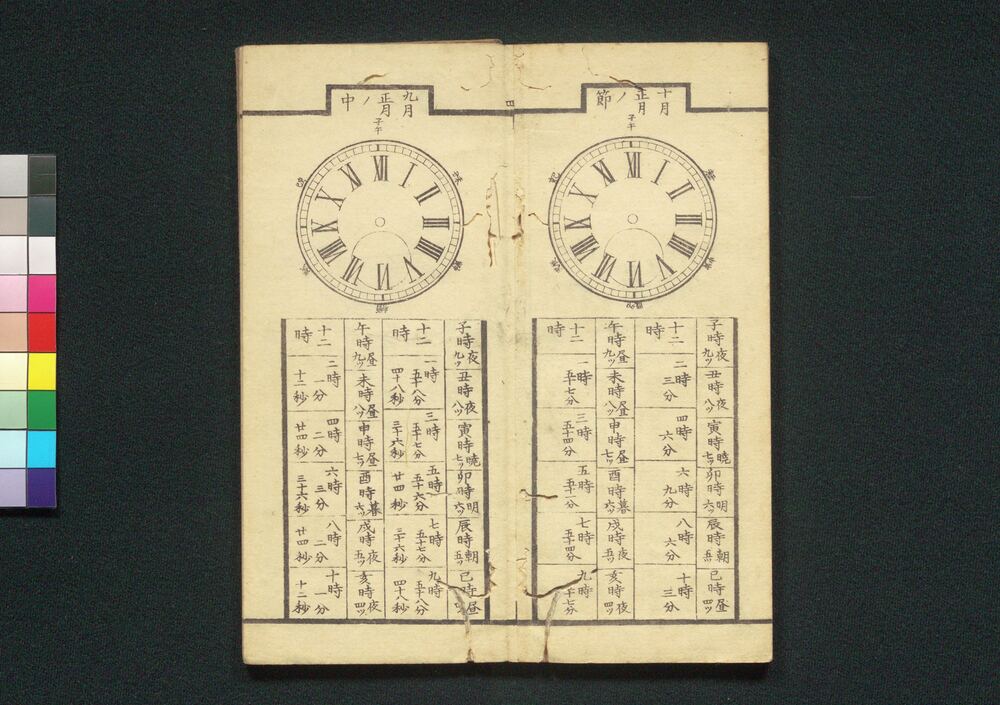 十月
正月ノ節
子午
XII I II III IIII V VI VII VIII IX X XI
子時夜九ツ
丑時夜八ツ
寅時暁七ツ
卯時明六ツ
辰時朝五ツ
巳時昼四ツ
十二時
二時三分
四時六分
六時九分
八時六分
十時三分
午時昼九ツ
未時昼八ツ
申時昼七ツ
酉時暮六ツ
戌時夜五ツ
亥時夜四ツ
十二時
一時五十七分
三時五十四分
五時五十一分
七時五十四分
九時五十七分
九月
正月ノ中
子午
XII I II III IIII V VI VII VIII IX X XI
子時夜九ツ
丑時夜八ツ
寅時暁七ツ
卯時明六ツ
辰時朝五ツ
巳時昼四ツ
十二時
一時五十八分四十八秒
三時五十七分三十六秒
五時五十六分廿四秒
七時五十七分三十六秒
九時五十八分四十八秒
午時昼九ツ
未時昼八ツ
申時昼七ツ
酉時暮六ツ
戌時夜五ツ
亥時夜四ツ
十二時
二時一分十二秒
四時二分廿四秒
六時三分三十六秒
八時二分廿四秒
十時一分十二秒